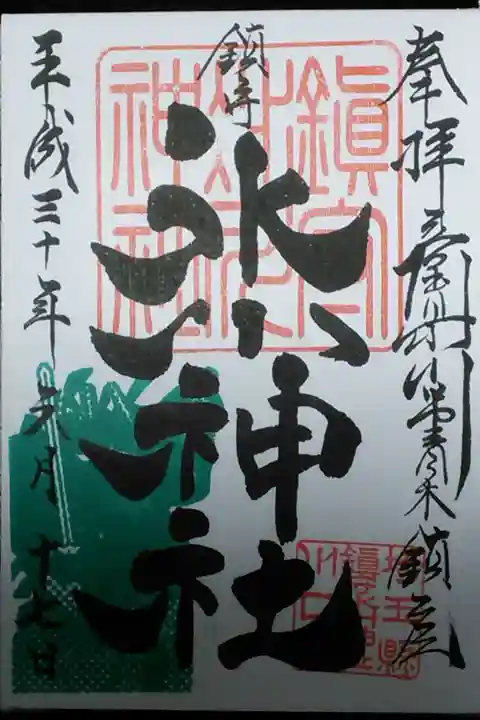 奉拝
鎮座
鎮守
氷川神社
鎮守
氷川
神社
平成三十年六月十七日
埼玉県
鎮守氷川神社
川口